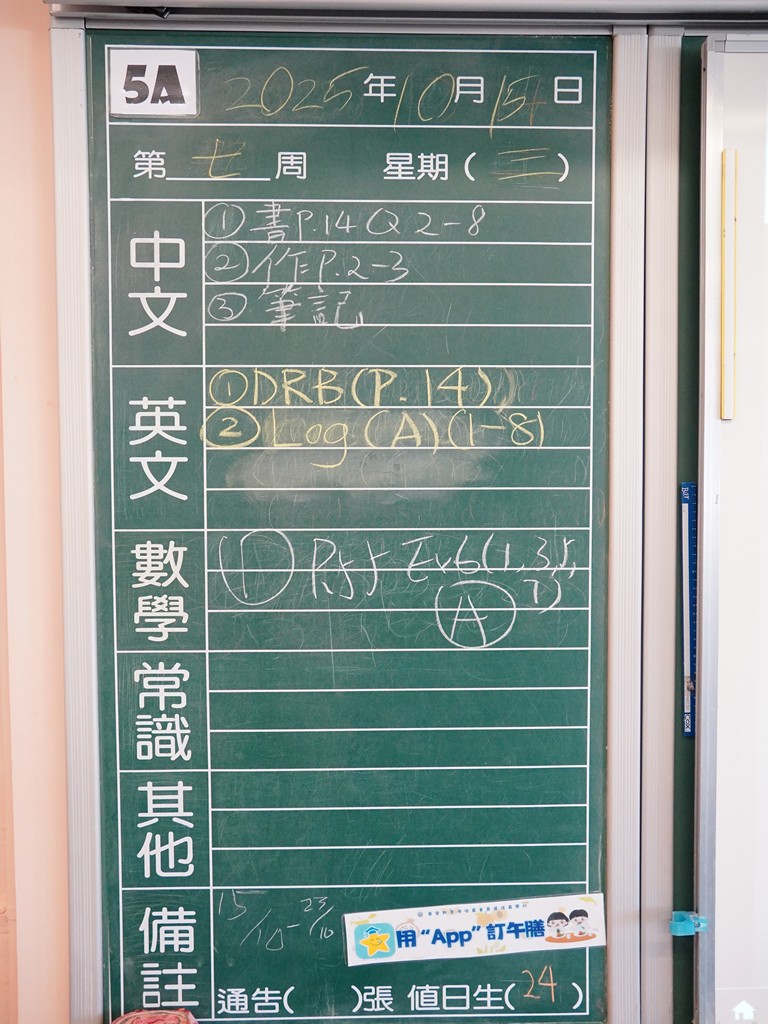 5A 2025年10月15日
第七周 星期(三)
中文
①書P.14 Q2-8
②作P.2-3
③筆記
英文
①DRB(P.14)
②Log(A)(1-8)
數學
① P.55 Ex6(1,3,5,
7)
A
常識
其他
備註
15/10-23/10
用“App”訂午膳
通告( )張 值日生(24)